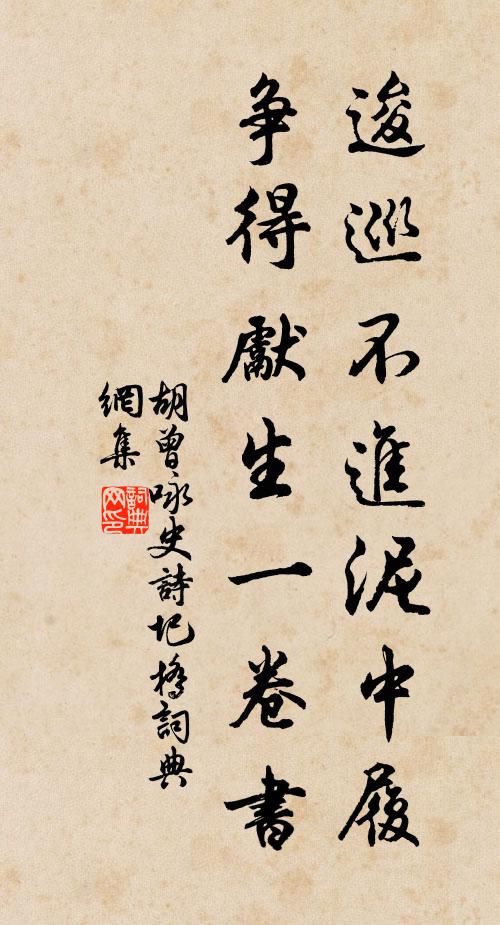 逡巡不進泥中履
争得獻生一卷書
胡曾咏史詩圯橋詞典
網集
詞典
网印